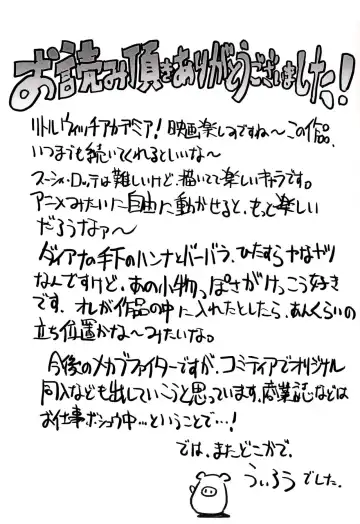 お読み頂きありがとうございました!
リトルウィッチアカデミア! 映画楽しみですね〜この作品、
いつまでも続いてくれるといいな〜
スーシィ・ロッテは難しいけど、描いてて楽しいキャラです。
アニメみたいに自由に動かせると、もっと楽しい
だろうなァ〜
ダイアナの手下のハンナとバーバラ、ひたすらイヤなヤツ
なんですけど、あの小物っぽさがけっこう好き
です。オレが作品の中に入れたとしたら、あんくらいの
立ち位置かな〜みたいな。
今後のメカブファイターですが、コミティアでオリジナル
同人なども出していこうと思っています、商業誌などは
お仕事ボシュウ中…ということで…!
では、またどこかで。
ういろうでした。